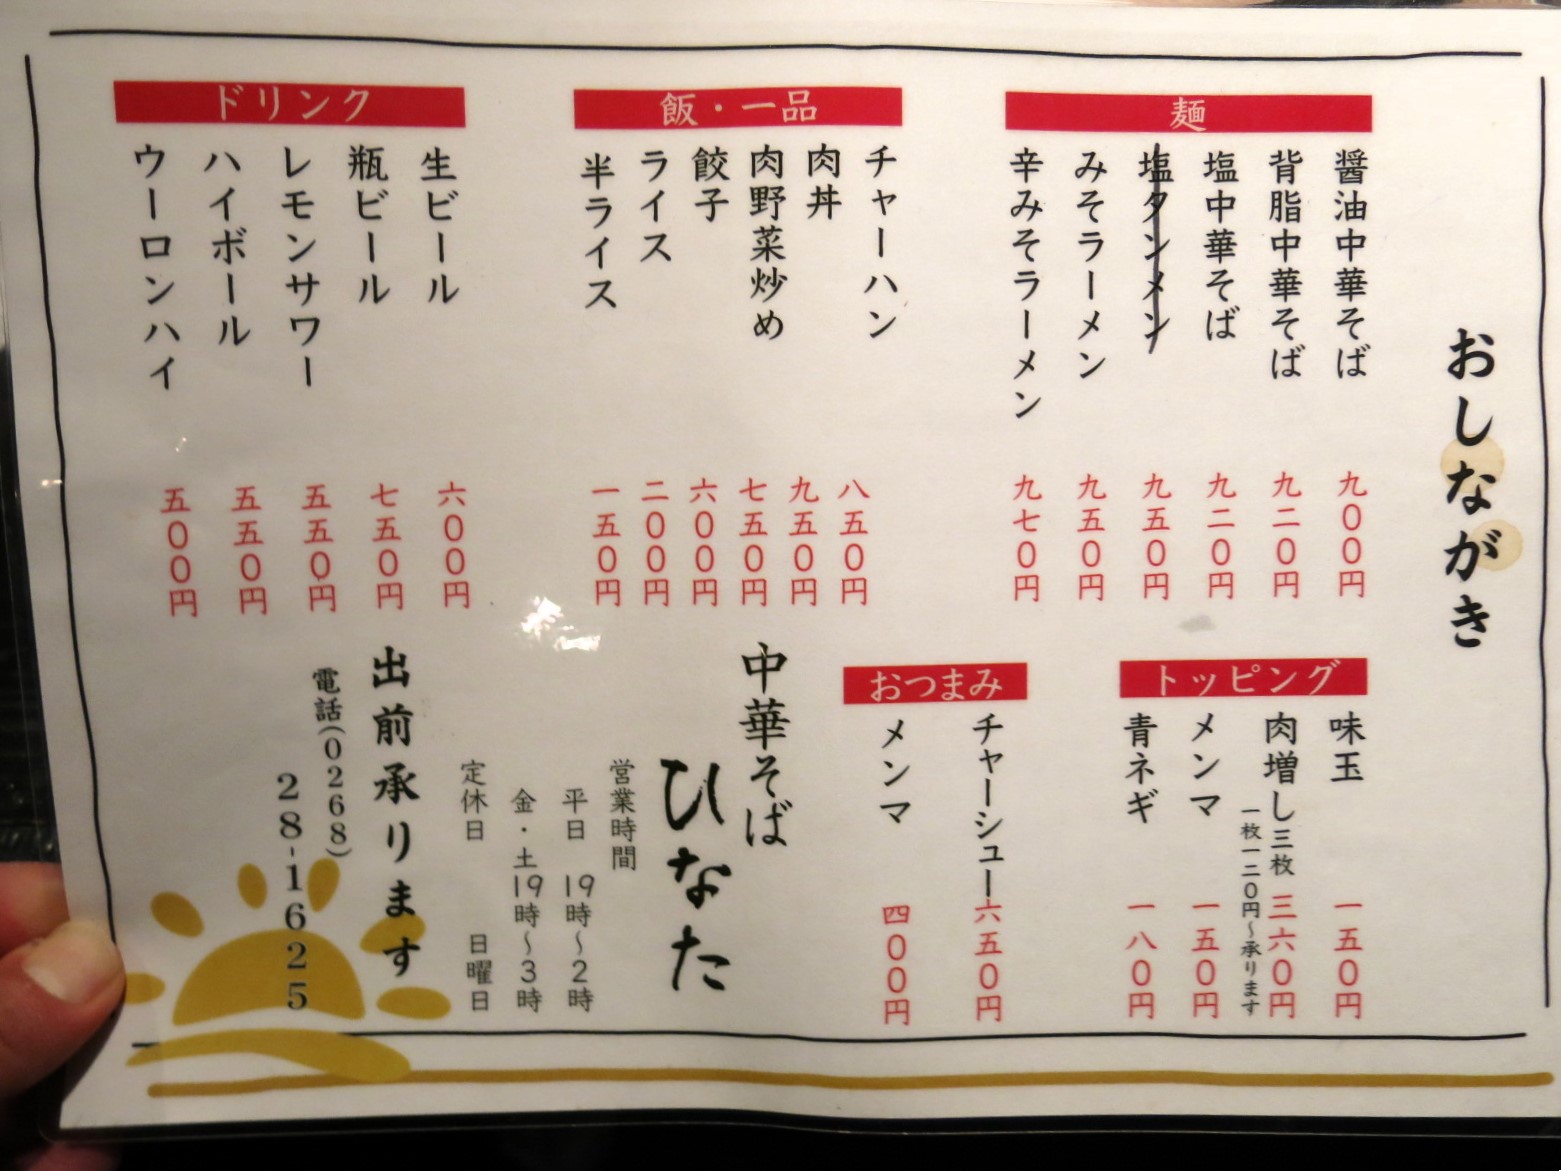 おしながき
麺
醤油中華そば 九００円
背脂中華そば 九二０円
塩中華そば 九二０円
塩タンメン 九五０円
みそラーメン 九五０円
辛みそラーメン 九七０円
飯・一品
チャーハン 八五０円
肉丼 九五０円
肉野菜炒め 七五０円
餃子 六００円
ライス 二００円
半ライス 一五０円
ドリンク
生ビール 六００円
瓶ビール 七五０円
レモンサワー 五五０円
ハイボール 五五０円
ウーロンハイ 五００円
トッピング
味玉 一五０円
肉増し三枚 三六０円
一枚一二０円～承ります
メンマ 一五０円
青ネギ 一八０円
おつまみ
チャーシュー 六五０円
メンマ 四００円
中華そば
ひなた
営業時間
平日 19時～2時
金・土19時～3時
定休日 日曜日
出前承ります
電話(0268)
28-1625